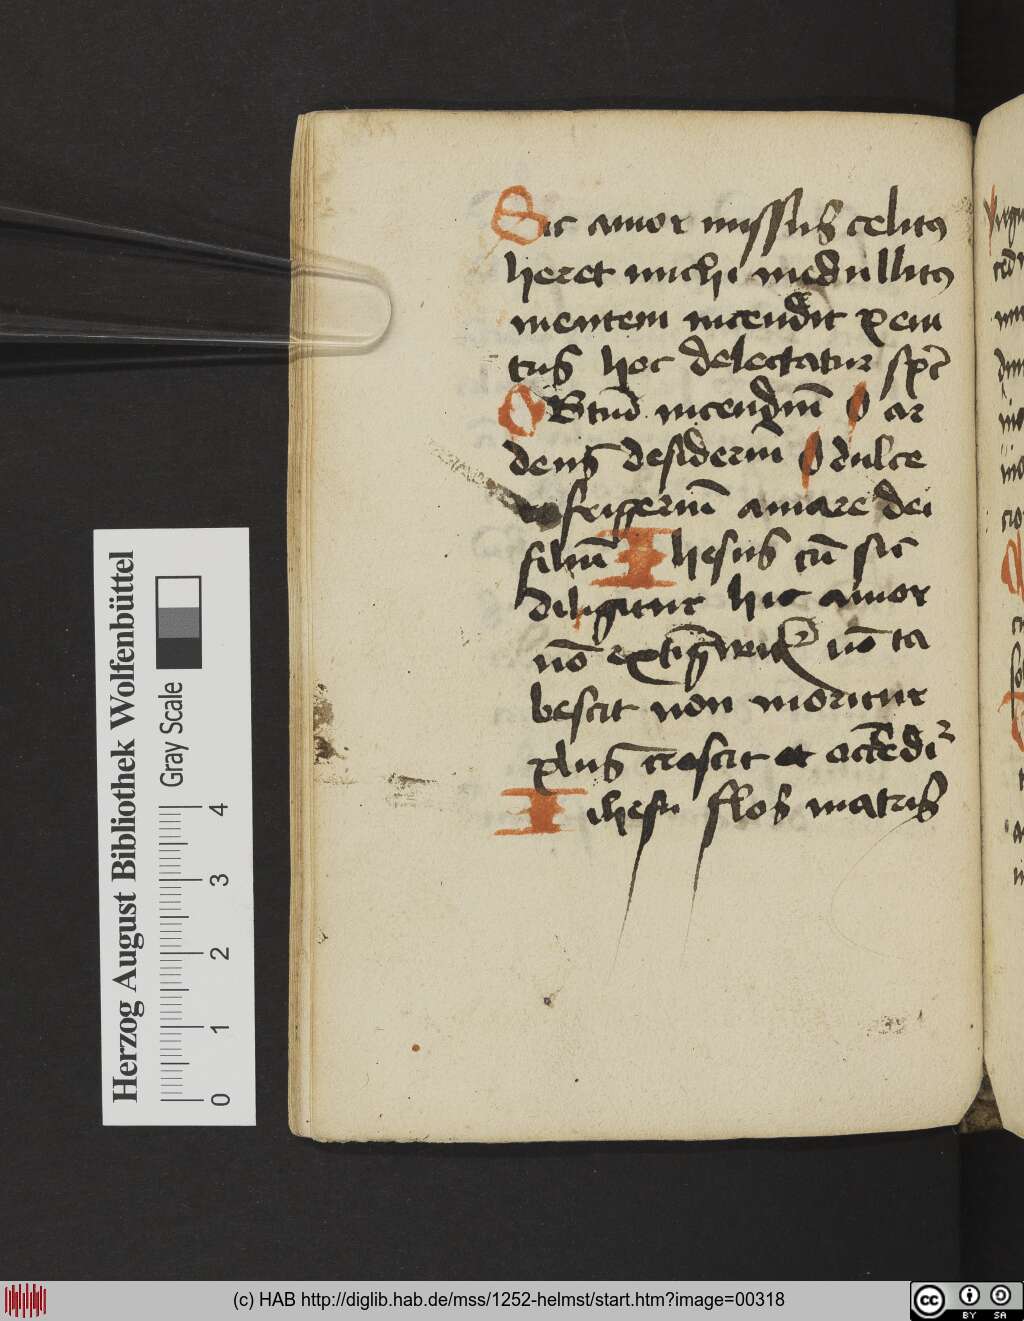 Sic amor missus celitꝰ
heret michi medullitꝰ
mentem incendit peni
tus hoc delectatur sp̄c
O Btūd incendiū O ar
dens desideriū O dulce
refrigeriū amare dei
filiū I hesus cū sic
diligitur hic amor
nō extīgwitꝛ nō ta
bescit non moritur
plus crescit et accēdiꝛ
I ihesu flos matris
Herzog August Bibliothek Wolfenbüttel
Gray Scale
0 1 2 3 4
(c) HAB http://diglib.hab.de/mss/1252-helmst/start.htm?image=00318
cc BY SA